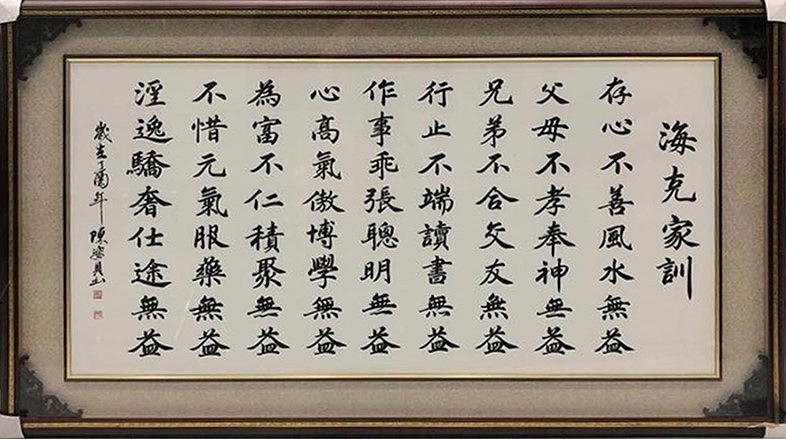 海克家訓
存心不善風水無益
父母不孝奉神無益
兄弟不合交友無益
行止不端讀書無益
作事乖張聰明無益
心高氣傲博學無益
為富不仁積聚無益
不惜元氣服藥無益
淫逸驕奢仕途無益
歲在丁酉年
陳